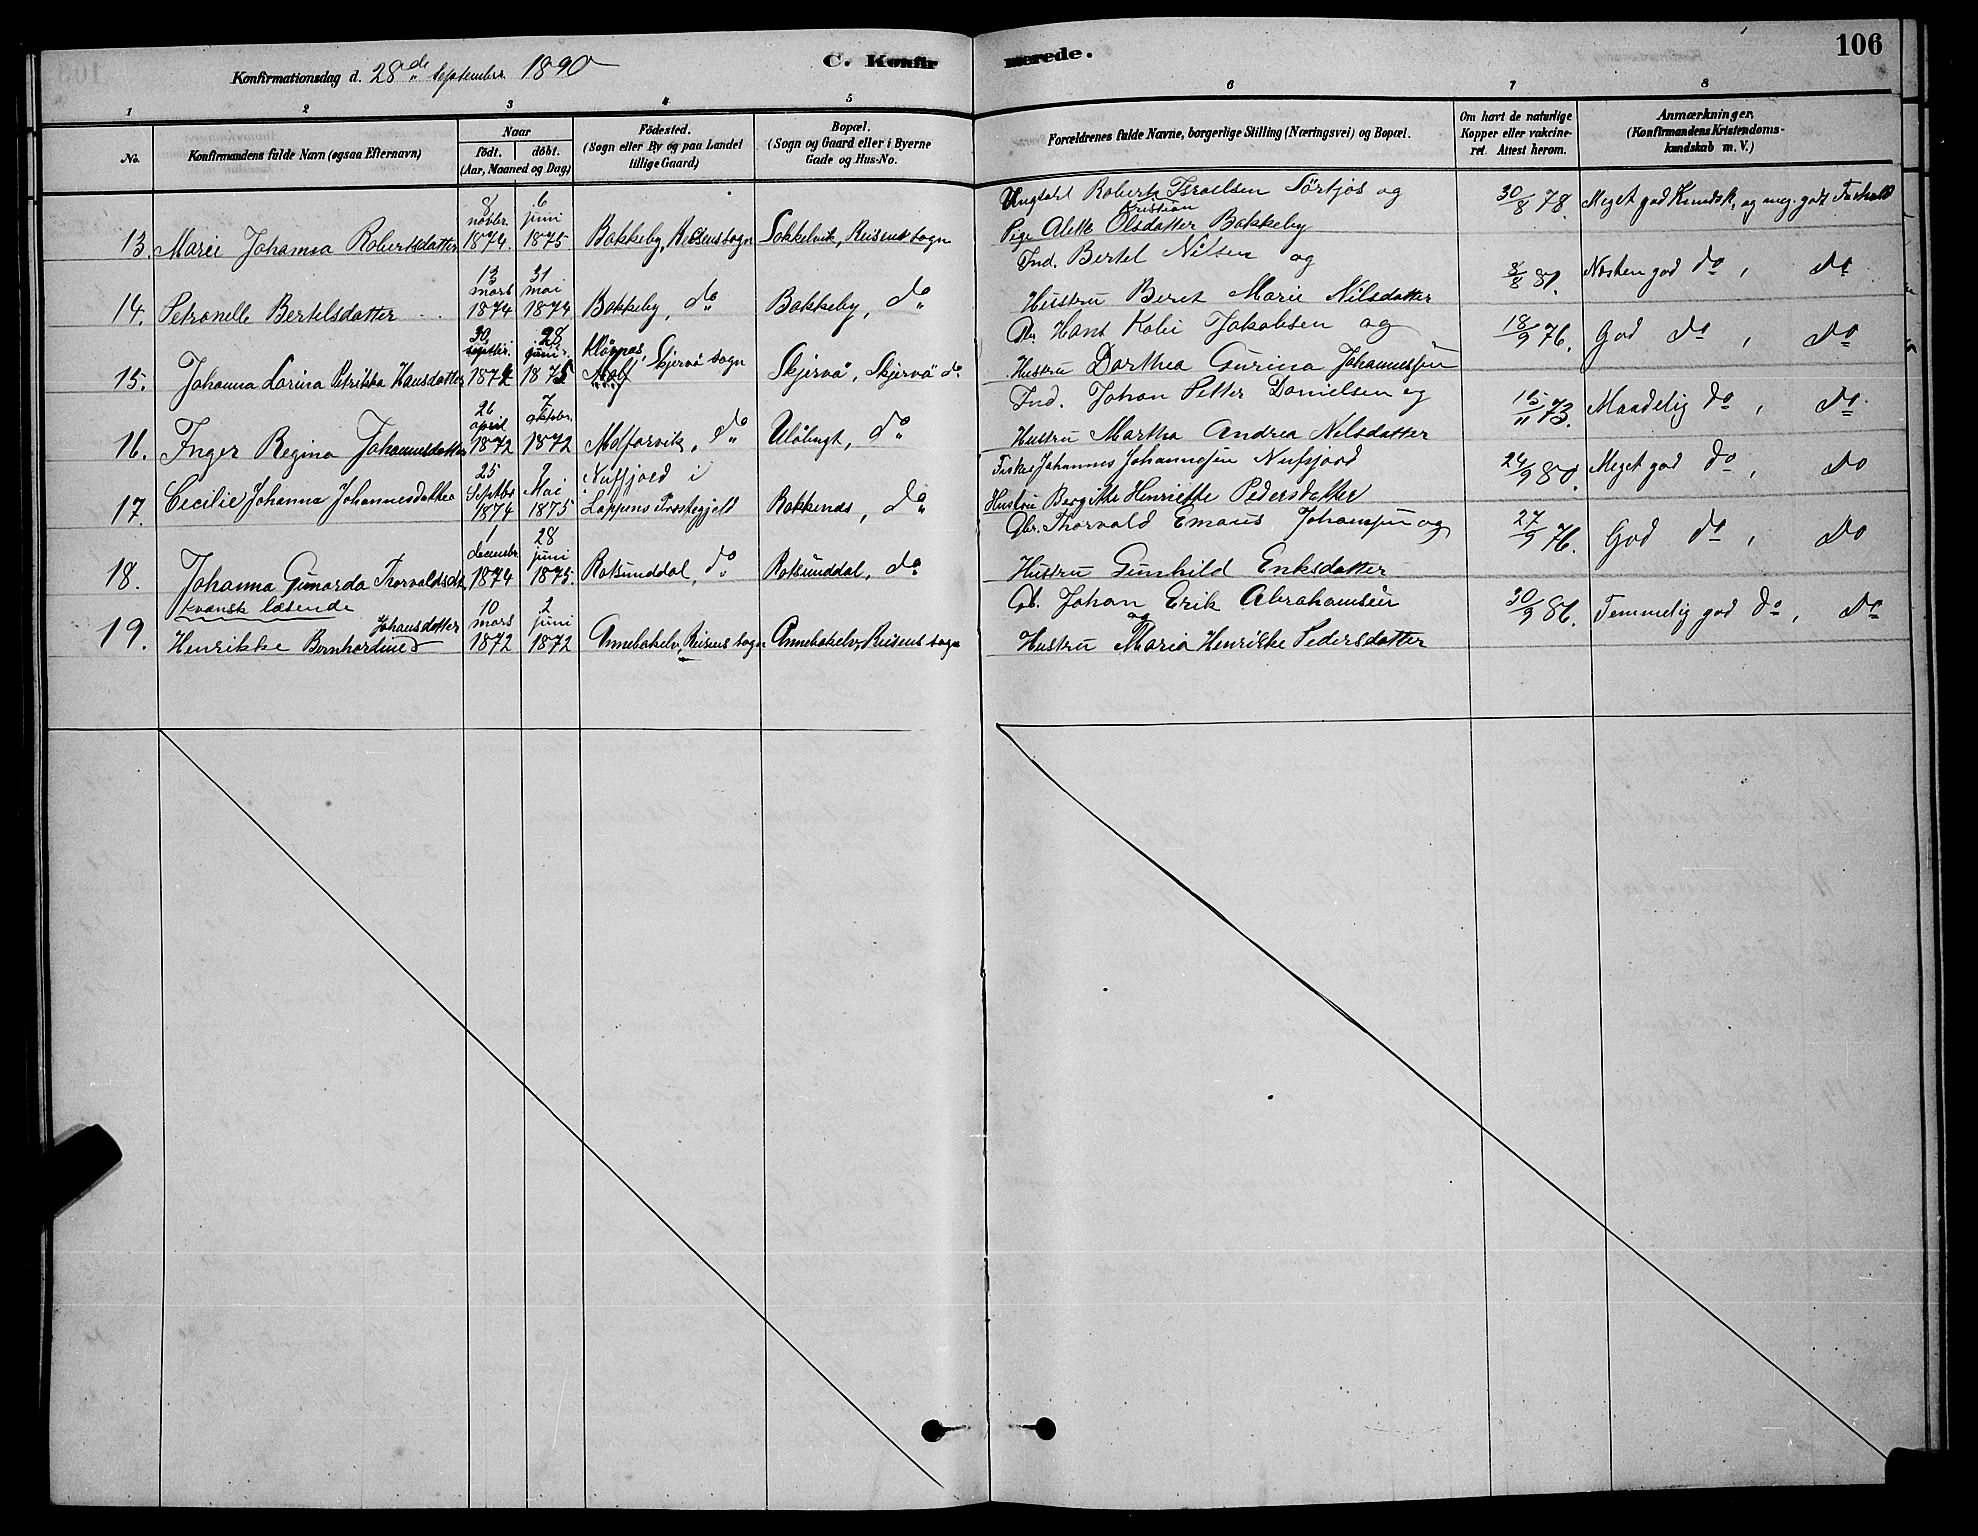 Konfirmationsdag d. 28de September 1890
C. Konfirmerede.
106
1 2 3 4 5 6 7 8
No.
Konfirmandens fulde Navn (ogsaa Efternavn)
Naar
födt. döbt.
(Aar, Maaned og Dag)
Födested.
(Sogn eller By og paa Landet
tillige Gaard)
Bopæl.
(Sogn og Gaard eller i Byerne
Gade og Hus-No.
Forældrenes fulde Navne, borgerlige Stilling (Næringsvei) og Bopæl.
Om havt de naturlige
Kopper eller vakcine-
ret. Attest herom.
Anmærkninger,
(Konfirmandens Kristendoms-
kundskab m. V.)
13. Marei Johanna Robertsdatter
8 novbr. 1874. 6 juni 1875
Bakkeby, Reisens sogn
Sokkelvik, Reisens sogn
Ungkarl Robert Kristian Israelsen Sörkjos og
Pige Alette Olsdatter Bakkeby
30/8 78.
Meget god Kundsk, og meg. godt Forhold
14. Petronelle Bertelsdatter
13 mars 1874 31 mai 1874
Bakkeby, do
Bakkeby, do
Ind. Bertel Nilsen og
Hustru Beret Marie Nilsdatter
8/8 81.
Nosten god do, do
15. Johanna Lorina Petrikka Hansdatter
30 septbr. 1874 28 juni 1875
Klövnes, Skjervö sogn
Skjervö, Skjervö do.
Hans Kolei Jakobsen og
Hustru Dorthea Gurina Johannessen
18/9 76.
God do, do
16. Inger Regina Johannesdatter
26 april 1872 7 oktobr. 1872
Molforvik, do
Ulöbugt, do
Ind. Johan Petter Danielsen og
Hustru Martha Andrea Nilsdatter
15/11 73.
Maadelig do, do
17. Cecilie Johanna Johannesdatter
25 Septbr 1874 9 Mai 1875
Nuffjord i
Loppens Prestegjeld
Bakkenas, do
Fisker Johannes Johannesen Nufsjord
Hustru Bergitte Henriette Pedersdatter
24/9 80.
Meget god do, do
18. Johanna Gunarda Thorvaldsdt.
1 decembr. 1874 28 juni 1875.
Rotsunddal, do
Rotsunddal, do
Gbr. Thorvald Emaus Johansen og
Hustru Gunhild Eriksdatter
27/9 76.
God do, do
Kvansk læsende
19. Henrikke Bernhardine Johansdatter
10 mars 1872 2 juni 1872
Annebakelv, Reisens sogn
Annebakelv, Reisens sogn
Gb. Johan Erik Abrahamsen
og
Hustru Maria Henrikke Pedersdatter
30/9 86.
Temmelig god do, do